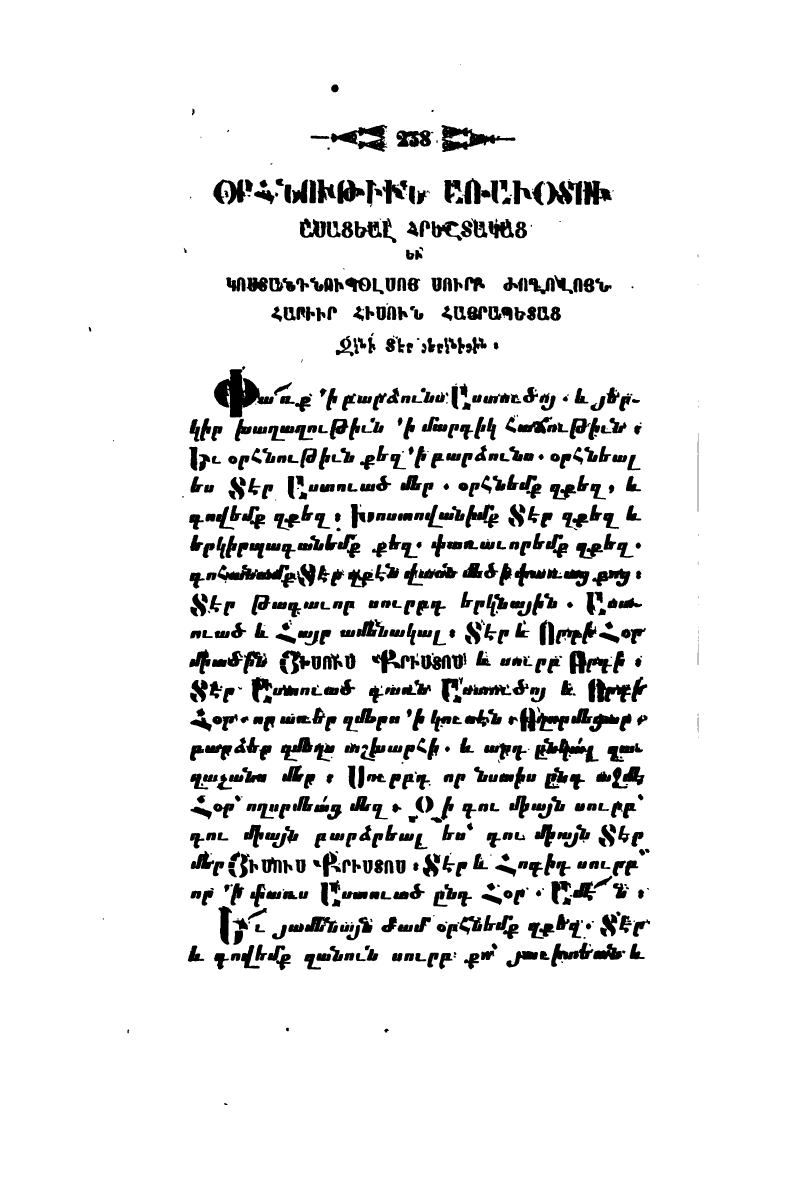 238
ՕՐՀՆՈՒԹԻՒՆ ԱՌԱՒՕՏՈՒ
ԸՍԱՑԵԱԼ ՀՐԵՇՏԱԿԱՑ
ԵՒ
ԿՈՍՏԱՆԴԻՆՈՒՊՕԼՍՈՅ ՍՈՒՐԲ ԺՈՂՈՎՈՅՆ
ՀԱՐԻՒՐ ՀԻՍՈՒՆ ՀԱՅՐԱՊԵՏԱՑ
Փա՜ռք ՚ի բարձունս Աստուծոյ . և յեր֊
կիր խաղաղութիւն ՚ի մարդիկ հաճութիւն ։
Եւ օրհնութիւն քեզ ՚ի բարձունս . օրհնեալ
ես Տէր Աստուած մեր . օրհնեմք զքեզ , և
գովեմք զքեզ ։ Խոստովանիմք Տէր զքեզ և
երկիրպագանեմք քեզ . փառաւորեմք զքեզ .
գոհանամք Տէր զքէն վասն մեծի փառաց քոց ։
Տէր թագաւոր սուրբդ երկնային . Աստ֊
ուած և Հայր ամենակալ ։ Տէր և Որդի Հօր
միածին ՅԻՍՈՒՍ ՔՐԻՍՏՈՍ և սուրբ Հոգի ։
Տէր Աստուած գառն Աստուծոյ և Որդի
Հօր . որ առեր զմերս ՚ի կուսէն . Ողորմեցար .
բարձեր զմեղս աշխարհի . և արդ ընկա՛լ զաւ
ղաչանս մեր ։ Սուրբդ որ նստիս ընդ աջմէ
Հօր՝ ողորմեա՛ց մեզ . Զի դու միայն սուրբ՝
դու միայն բարձրեալ ես՝ դու միայն Տէր
մեր ՅԻՍՈՒՍ ՔՐԻՍՏՈՍ ։ Տէր և Հոգիդ սուրբ՝
որ ՚ի փառս Աստուած ընդ Հօր . Ամէ՜ն ։
Ե՜ւ յամենայն ժամ օրհնեմք զքեզ . Տէր
և գովեմք զանուն սուրբ քո՝ յաւիտեան և